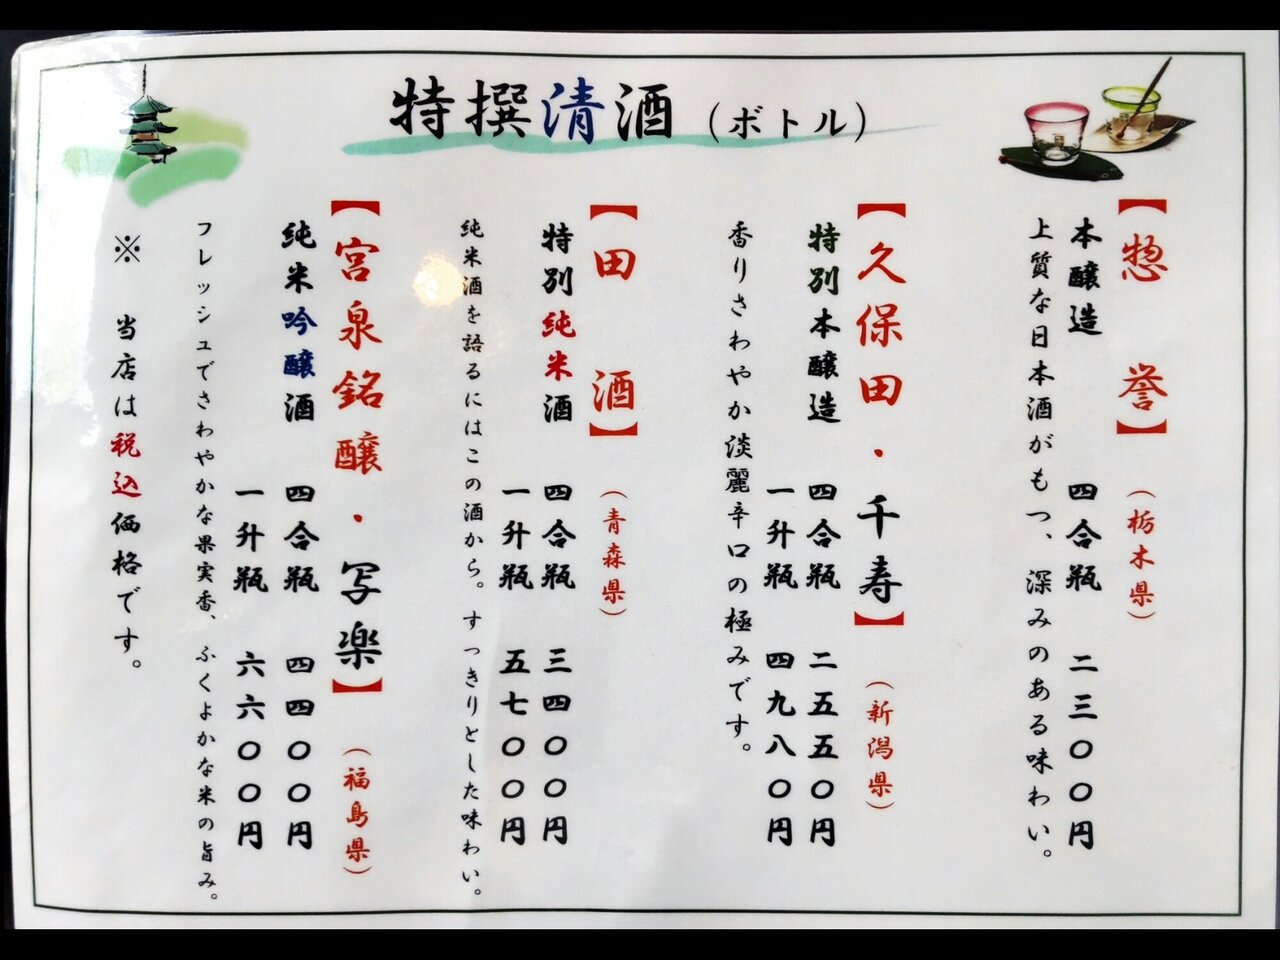 特撰清酒（ボトル）
【惣 誉】（栃木県）
本醸造 四合瓶 二三〇〇円
上質な日本酒がもつ、深みのある味わい。
【久保田・千寿】（新潟県）
特別本醸造 四合瓶 二五五〇円
一升瓶 四九八〇円
香りさわやか淡麗辛口の極みです。
【田 酒】（青森県）
特別純米酒 四合瓶 三四〇〇円
一升瓶 五七〇〇円
純米酒を語るにはこの酒から。すっきりとした味わい。
【宮泉銘醸・写楽】（福島県）
純米吟醸酒 四合瓶 四四〇〇円
一升瓶 六六〇〇円
フレッシュでさわやかな果実香、ふくよかな米の旨み。
※ 当店は税込価格です。